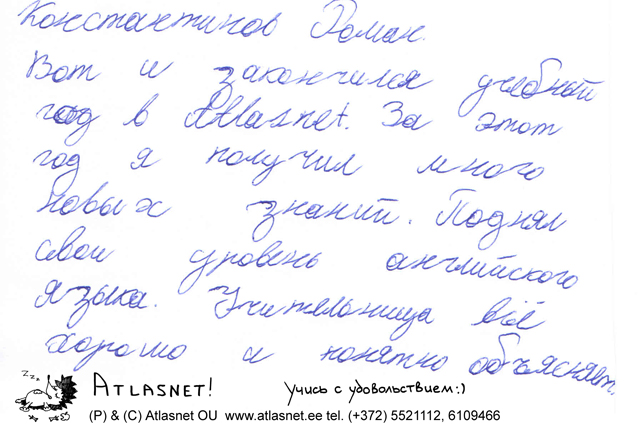 Константинов Роман.
Вот и закончился учебный
год в Atlasnet. За этот
год я получил много
новых знаний. Поднял
свой уровень английского
языка. Учительница всё
хорошо и понятно объясняет.
zzz
ATLASNET!
Учись с удовольствием:)
(P) & (C) Atlasnet OU www.atlasnet.ee tel. (+372) 5521112, 6109466